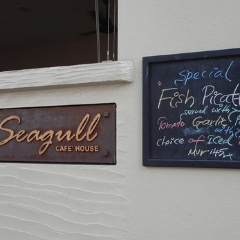 Seagull
CAFE' HOUSE
special
Fish Picat
served with
Tomato Garlic
with
choice of ICed
Mvr 145